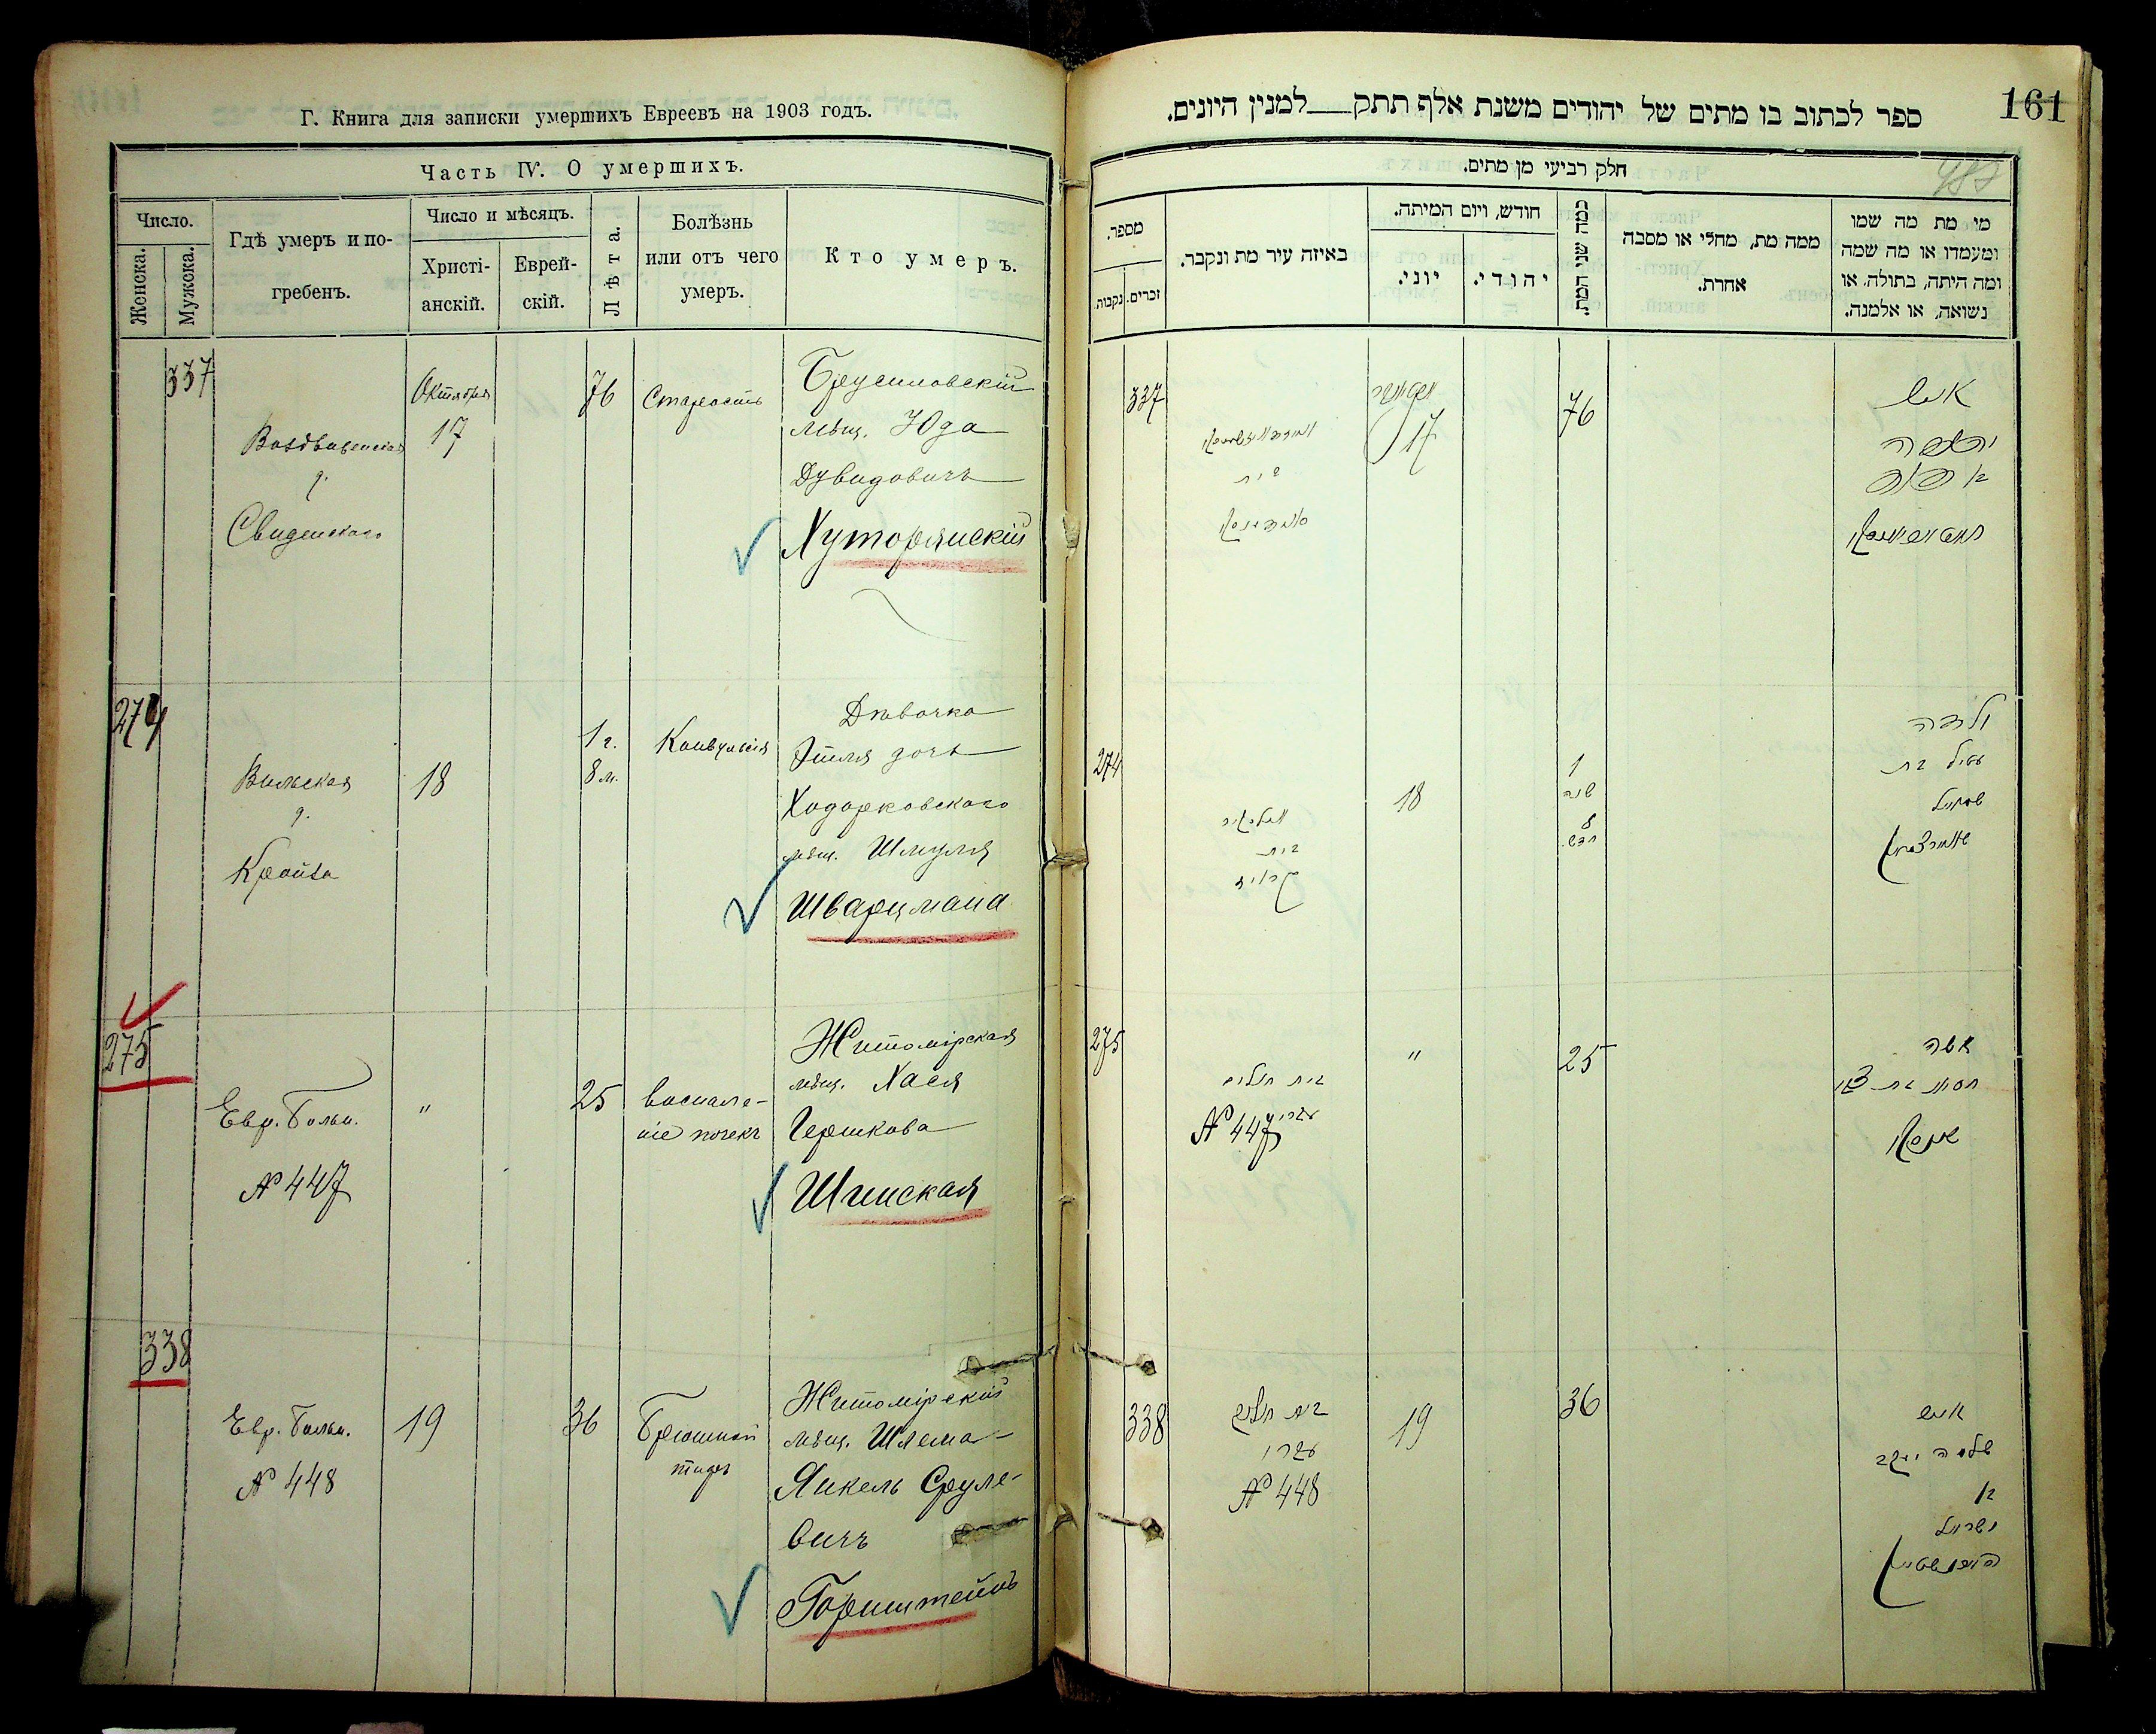 Г. Книга для записки умершихъ Евреевъ на 1903 годъ.
Часть IV. О умершихъ.
Число.
Женска.
Мужска.
Гдѣ умеръ и по-
гребенъ.
Число и мѣсяцъ.
Христі-
анскій.
Еврей-
скій.
Лѣта.
Болѣзнь
или отъ чего
умеръ.
Кто умеръ.
337
Воздвиженская
д.
Свиденского
Октября
17
76
Старость
Брусиловскій
мѣщ. Юда
Дувидовичъ
Хуторянскій
274
Вильская
д.
Кройза
18
1 г.
8 м.
Конвульсія
Дѣвочка
Этля дочь
Ходорковского
мѣщ. Шмуля
Шварцмана
275
Евр. Больн.
№ 447
"
25
воспале-
ніе почекъ
Житомірская
мѣщ. Хася
Гершкова
338
Евр. Больн.
№ 448
19
36
Брюшной
тифъ
Житомірскій
мѣщ. Шлема-
Янкель Сруле-
вичъ
Горинштейнъ
161
ספר לכתוב בו מתים של יהודים משנת אלף תתק למנין היונים.
חלק רביעי מן מתים.
מספר.
נקבות.
זכרים.
באיזה עיר מת ונקבר.
חודש, ויום המיתה.
יוני.
יהודי.
כמה שני המת.
ממה מת, מחלי או מסבה
אחרת.
מי מת מה שמו
ומעמדו או מה שמה
ומה היתה, בתולה, או
נשואה, או אלמנה.
337
17
76
איש
יהודה
בן דוד
274
בית
18
1
שנה
8
חדש
ילדה
עטיל בת
שמואל
שווארצמאן
275
בית חולים
עברי
№ 447
"
25
אשה
חסיא בת צבי
338
בית חולים
עברי
№ 448
19
36
איש
שלמה יעקב
בן
ישראל